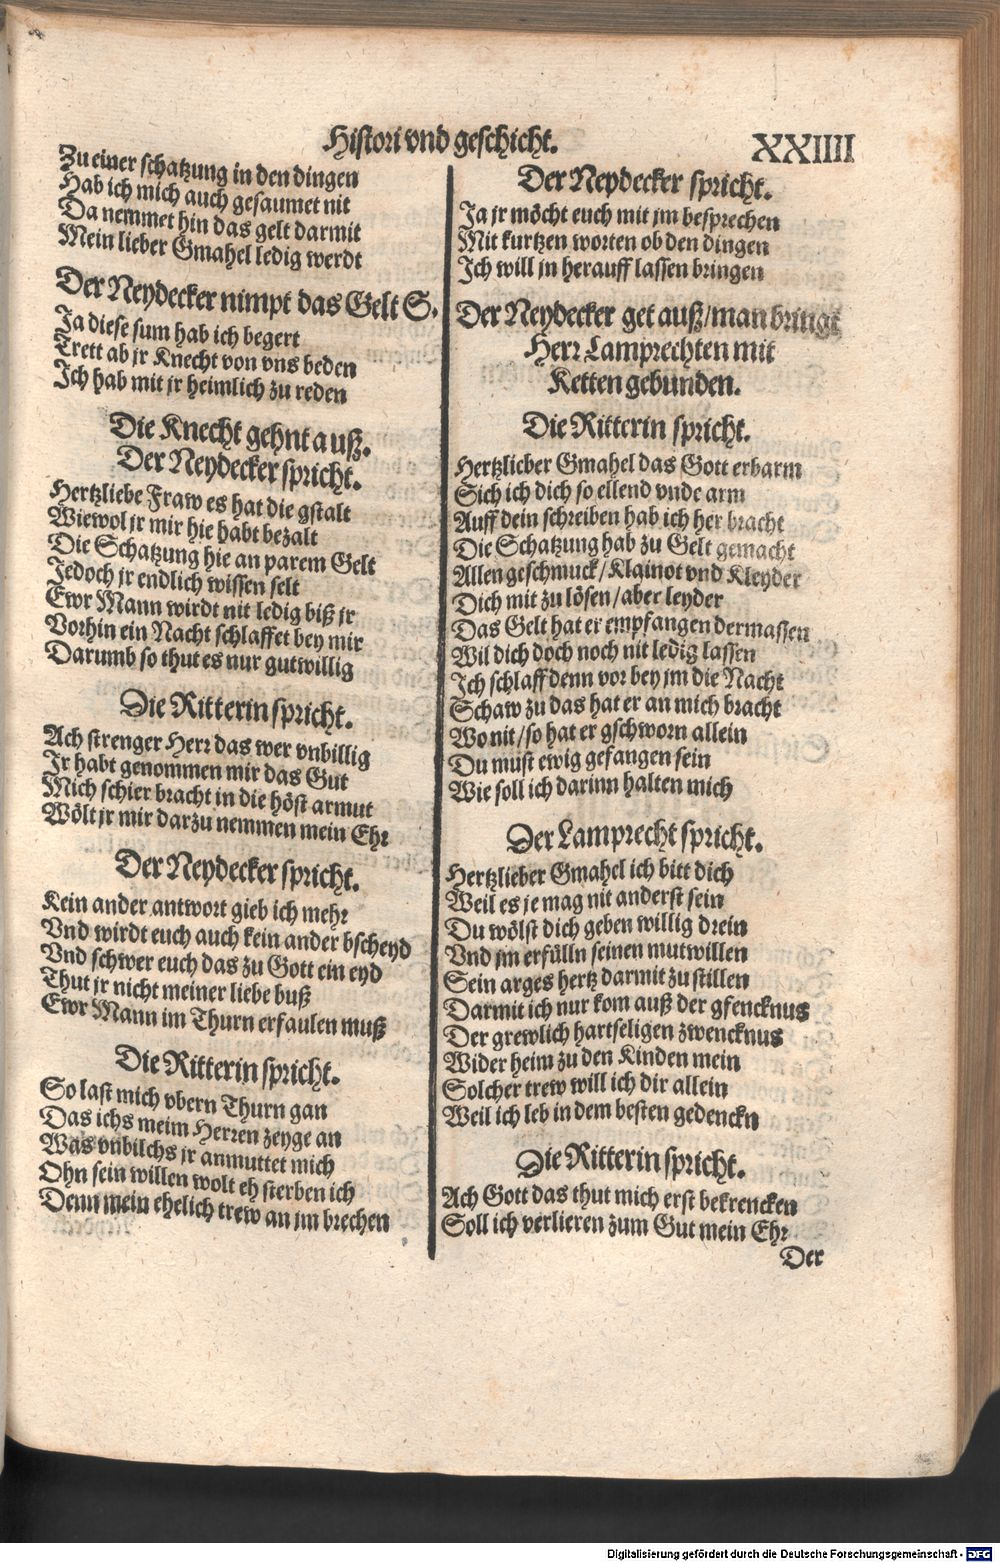 Histori vnd geschicht.
XXIIII
Zu einer schatzung in den dingen
Hab ich mich auch gesaumet nit
Da nemmet hin das gelt darmit
Mein lieber Gmahel ledig werdt
Der Neydecker nimpt das Gelt S.
Ja diese sum hab ich begert
Trett ab jr Knecht von vns beden
Ich hab mit jr heimlich zu reden
Die Knecht gehnt auß.
Der Neydecker spricht.
Hertzliebe Fraw es hat die gstalt
Wiewol jr mir hie habt bezalt
Die Schatzung hie an parem Gelt
Jedoch jr endlich wissen selt
Ewr Mann wirdt nit ledig biß jr
Vorhin ein Nacht schlaffet bey mir
Darumb so thut es nur gutwillig
Die Ritterin spricht.
Ach strenger Herr das wer vnbillig
Jr habt genommen mir das Gut
Mich schier bracht in die höst armut
Wölt jr mir darzu nemmen mein Ehr
Der Neydecker spricht.
Kein ander antwort gieb ich mehr
Vnd wirdt euch auch kein ander bscheyd
Vnd schwer euch das zu Gott ein eyd
Thut jr nicht meiner liebe buß
Ewr Mann im Thurn erfaulen muß
Die Ritterin spricht.
So last mich vbern Thurn gan
Das ichs meim Herren zeyge an
Was vnbilchs jr anmuttet mich
Ohn sein willen wolt eh sterben ich
Denn mein ehelich trew an jm brechen
Der Neydecker spricht.
Ja jr möcht euch mit jm besprechen
Mit kurtzen worten ob den dingen
Ich will jn herauff lassen bringen
Der Neydecker get auß/man bringt
Herr Lamprechten mit
Ketten gebunden.
Die Ritterin spricht.
Hertzlieber Gmahel das Gott erbarm
Sich ich dich so ellend vnde arm
Auff dein schreiben hab ich her bracht
Die Schatzung hab zu Gelt gemacht
Allen geschmuck/Klainot vnd Kleyder
Dich mit zu lösen/aber leyder
Das Gelt hat er empfangen dermassen
Wil dich doch noch nit ledig lassen
Ich schlaff denn vor bey jm die Nacht
Schaw zu das hat er an mich bracht
Wo nit/so hat er gschworn allein
Du must ewig gefangen sein
Wie soll ich darinn halten mich
Der Lamprecht spricht.
Hertzlieber Gmahel ich bitt dich
Weil es je mag nit anderst sein
Du wölst dich geben willig drein
Vnd jm erfülln seinen mutwillen
Sein arges hertz darmit zu stillen
Darmit ich nur kom auß der gfencknus
Der grewlich hartseligen zwencknus
Wider heim zu den Kinden mein
Solcher trew will ich dir allein
Weil ich leb in dem besten gedenckn
Die Ritterin spricht.
Ach Gott das thut mich erst bekrencken
Soll ich verlieren zum Gut mein Ehr
Der
Digitalisierung gefördert durch die Deutsche Forschungsgemeinschaft - DFG